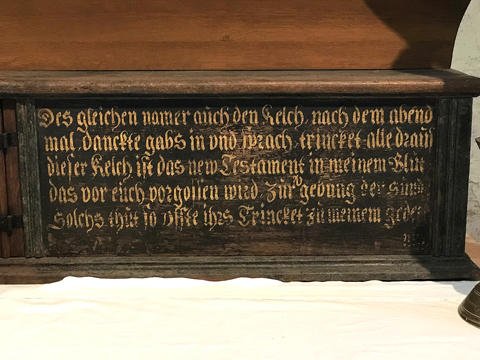 Des gleichen nomer auch den Kelch, nach dem abend
mal, danckte gabs in vnd sprach, trincket alle drauß
dieser Kelch ist das new Testament in meinem Blut
das vor euch vorgossen wird zur gebung der Sund
Solchs thut so offte ihrs Trincket zu meinem gedec